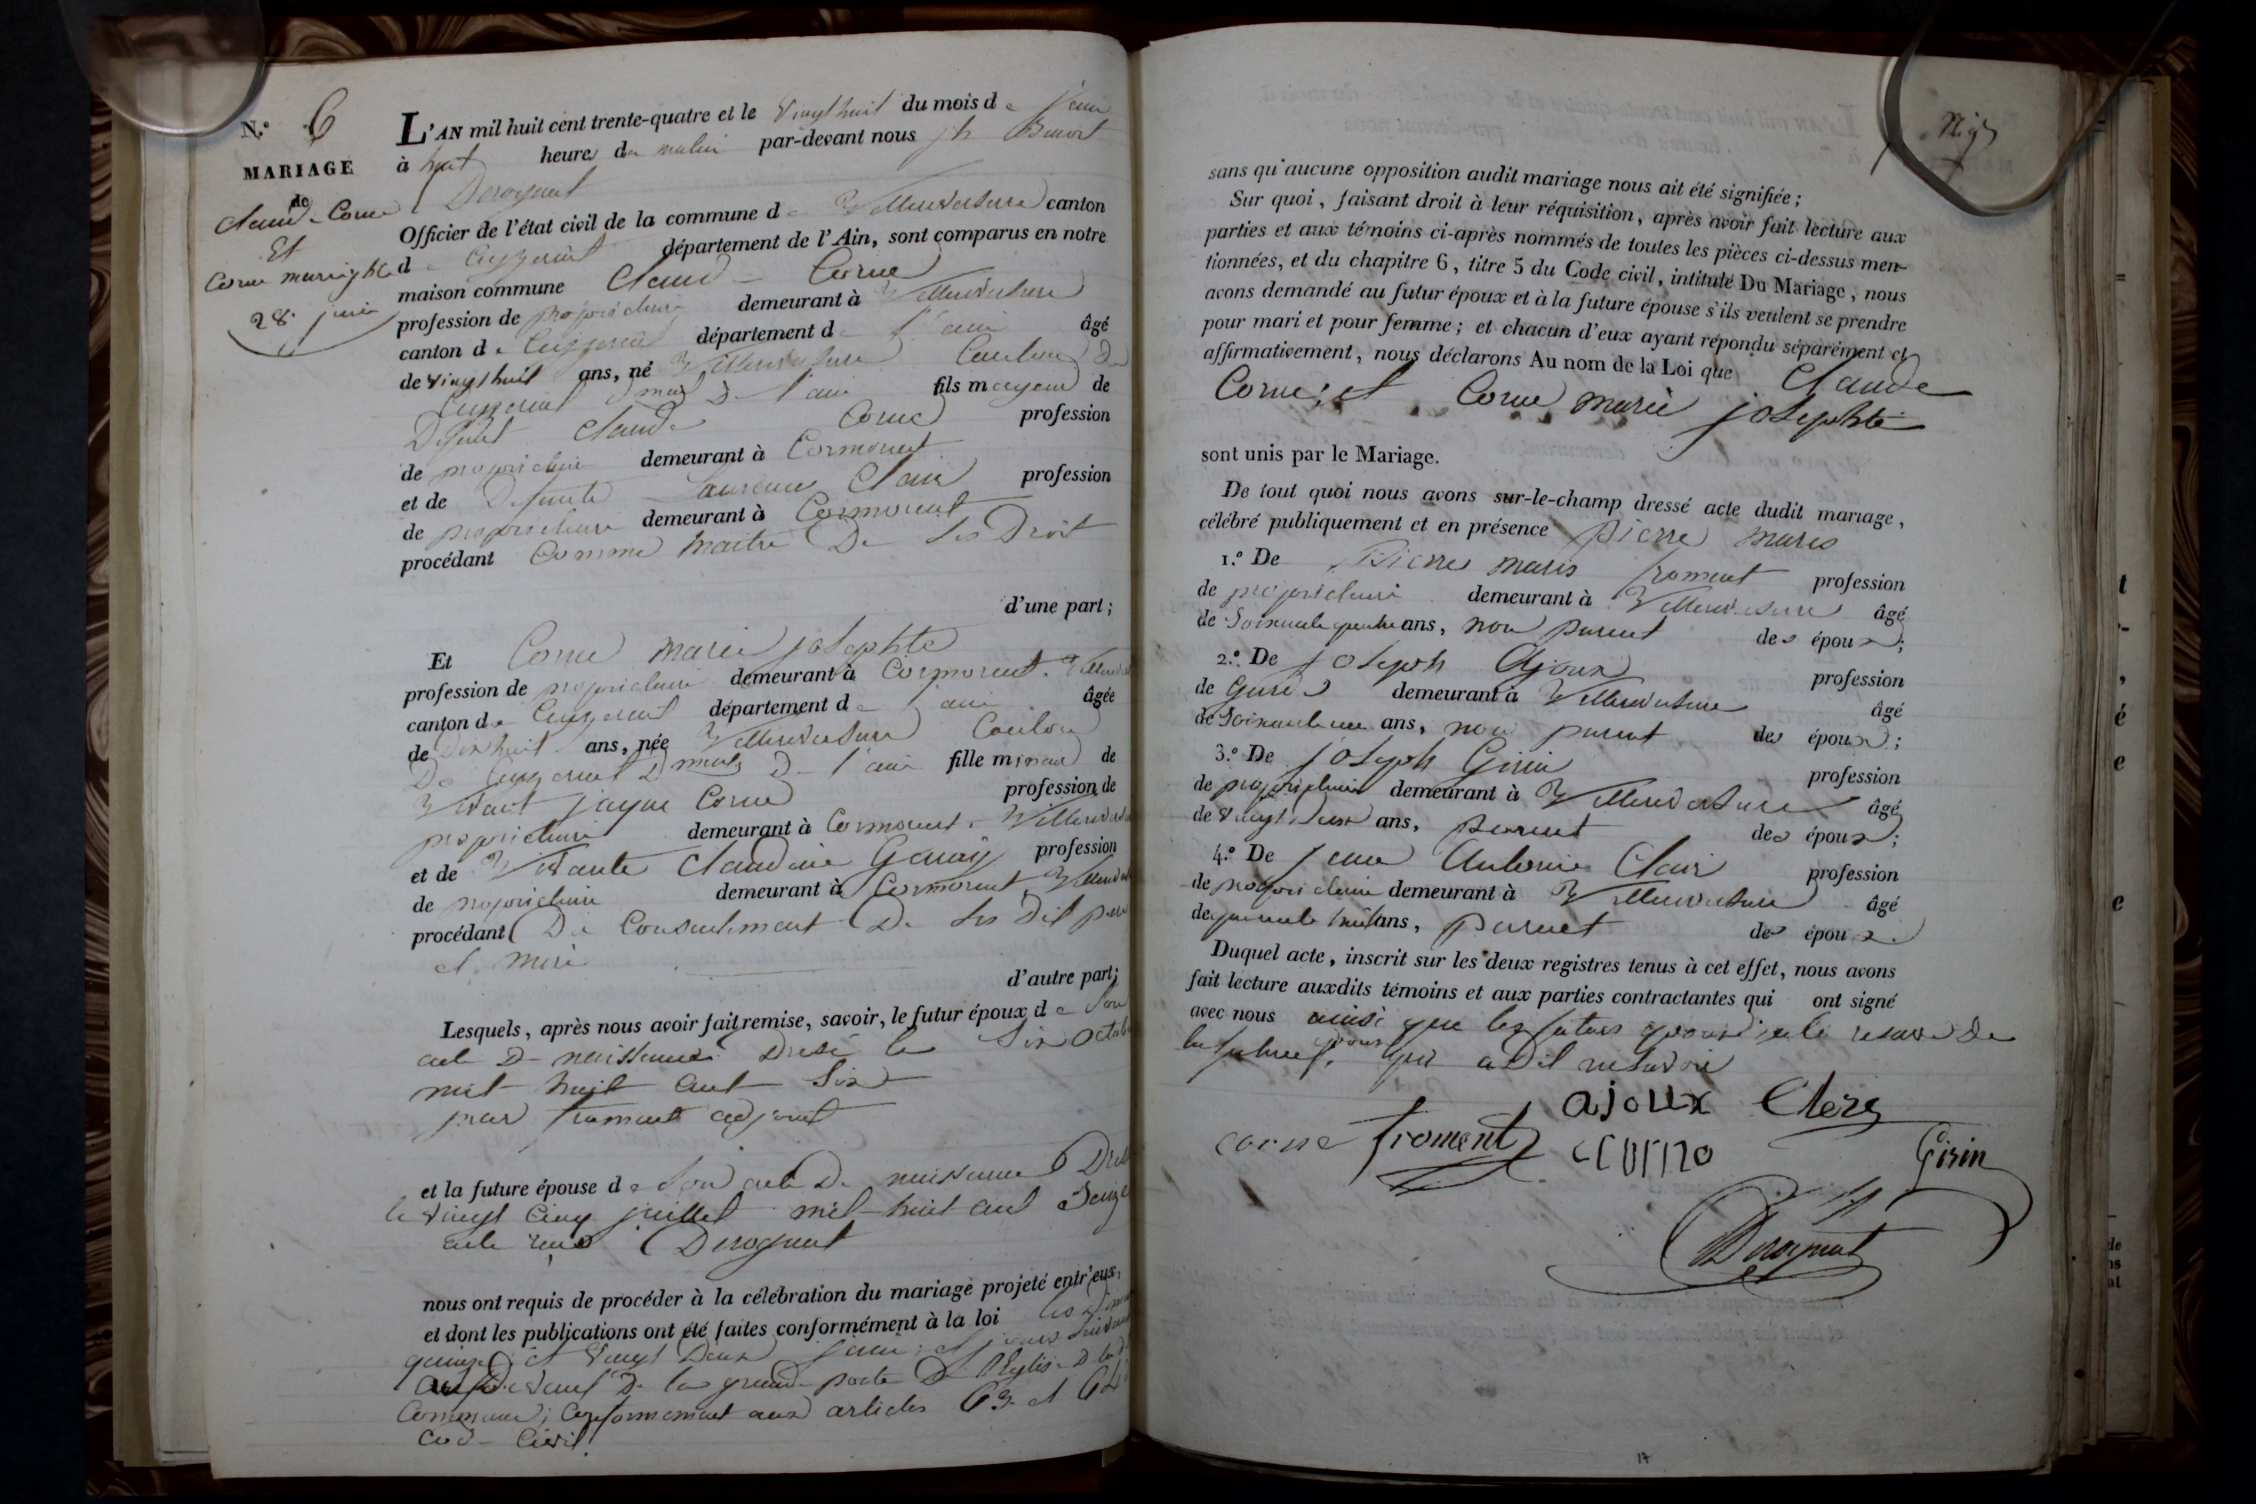 N.º 6
MARIAGE
de
Claude Corne
Et
Corne marie jhte
28 juin
L'AN mil huit cent trente-quatre et le vingt huit du mois de juin
à huit heures du matin par-devant nous jh Benoit
Derognat
Officier de l'état civil de la commune de Villereversure canton
de Ceyzeriat département de l'Ain, sont comparus en notre
maison commune Claude Corne
profession de propriétaire demeurant à Villereversure
canton de Ceyzeriat département de l'ain âgé
de vingt huit ans, né Villereversure Canton de
Ceyzeriat dmet de l'ain fils majeur de
Defunt Claude Corne profession
de proprietaire demeurant à Cormorent
et de Defunte Laurence Clair profession
de propriétaire demeurant à Cormorent
procédant Comme maitre De ses Droit
d'une part;
Et Corne marie josephte
profession de proprietaire demeurant à Cormorent
canton de Ceyzeriat département de l'ain âgée
de Dix huit ans, née Villereversure Canton
De Ceyzeriat Dmet de l'ain fille mineur de
Vivant jaque Corne profession de
proprietaire demeurant à Cormorent
et de Vivante Claudine profession
de proprietaire demeurant à Cormorent
procédant Du Consentement De ses dit pere
et mere
d'autre part;
Lesquels, après nous avoir fait remise, savoir, le futur époux de son
acte De naissance Dresé le Six octobre
mil huit cent Six
par froment adjoint
et la future épouse de Son acte De naissance
le vingt cinq juillet mil huit cent Seize
Derognat
nous ont requis de procéder à la célébration du mariage projeté entr'eux,
et dont les publications ont été faites conformément à la loi les
quinze et vingt Deux juin
devant De la grande porte De l'Eglise
Commune; Conformement aux articles 63 et 64
Code Civil
sans qu'aucune opposition audit mariage nous ait été signifiée;
Sur quoi, faisant droit à leur réquisition, après avoir fait lecture aux
parties et aux témoins ci-après nommés de toutes les pièces ci-dessus men-
tionnées, et du chapitre 6, titre 5 du Code civil, intitulé Du Mariage, nous
avons demandé au futur époux et à la future épouse s'ils veulent se prendre
pour mari et pour femme; et chacun d'eux ayant répondu séparément et
affirmativement, nous déclarons Au nom de la Loi que Claude
Corne, et Corne marie josephte
sont unis par le Mariage.
De tout quoi nous avons sur-le-champ dressé acte dudit mariage,
célébré publiquement et en présence pierre marie
1.º De Pierre marie froment profession
de proprietaire demeurant à Villereversure âgé
de Soixante quatre ans, non parent des époux;
2.º De joseph Ajoux profession
de demeurant à Villereversure âgé
de ans, non parent des époux;
3.º De joseph Girin profession
de proprietaire demeurant à Villereversure âgé
de vingt Deux ans, parent des époux;
4.º De jean Antoine Clair profession
de proprietaire demeurant à Villereversure âgé
de quarante huit ans, parent des époux.
Duquel acte, inscrit sur les deux registres tenus à cet effet, nous avons
fait lecture auxdits témoins et aux parties contractantes qui ont signé
avec nous ainsi que les futurs
qui a Dit ne savoir
ajoux Clerc
corne froment Girin
Derognat
17